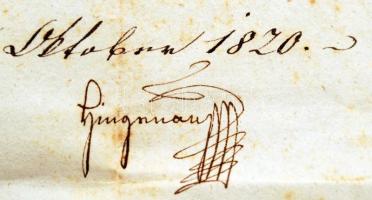 Oktober 1820.
Hingenau